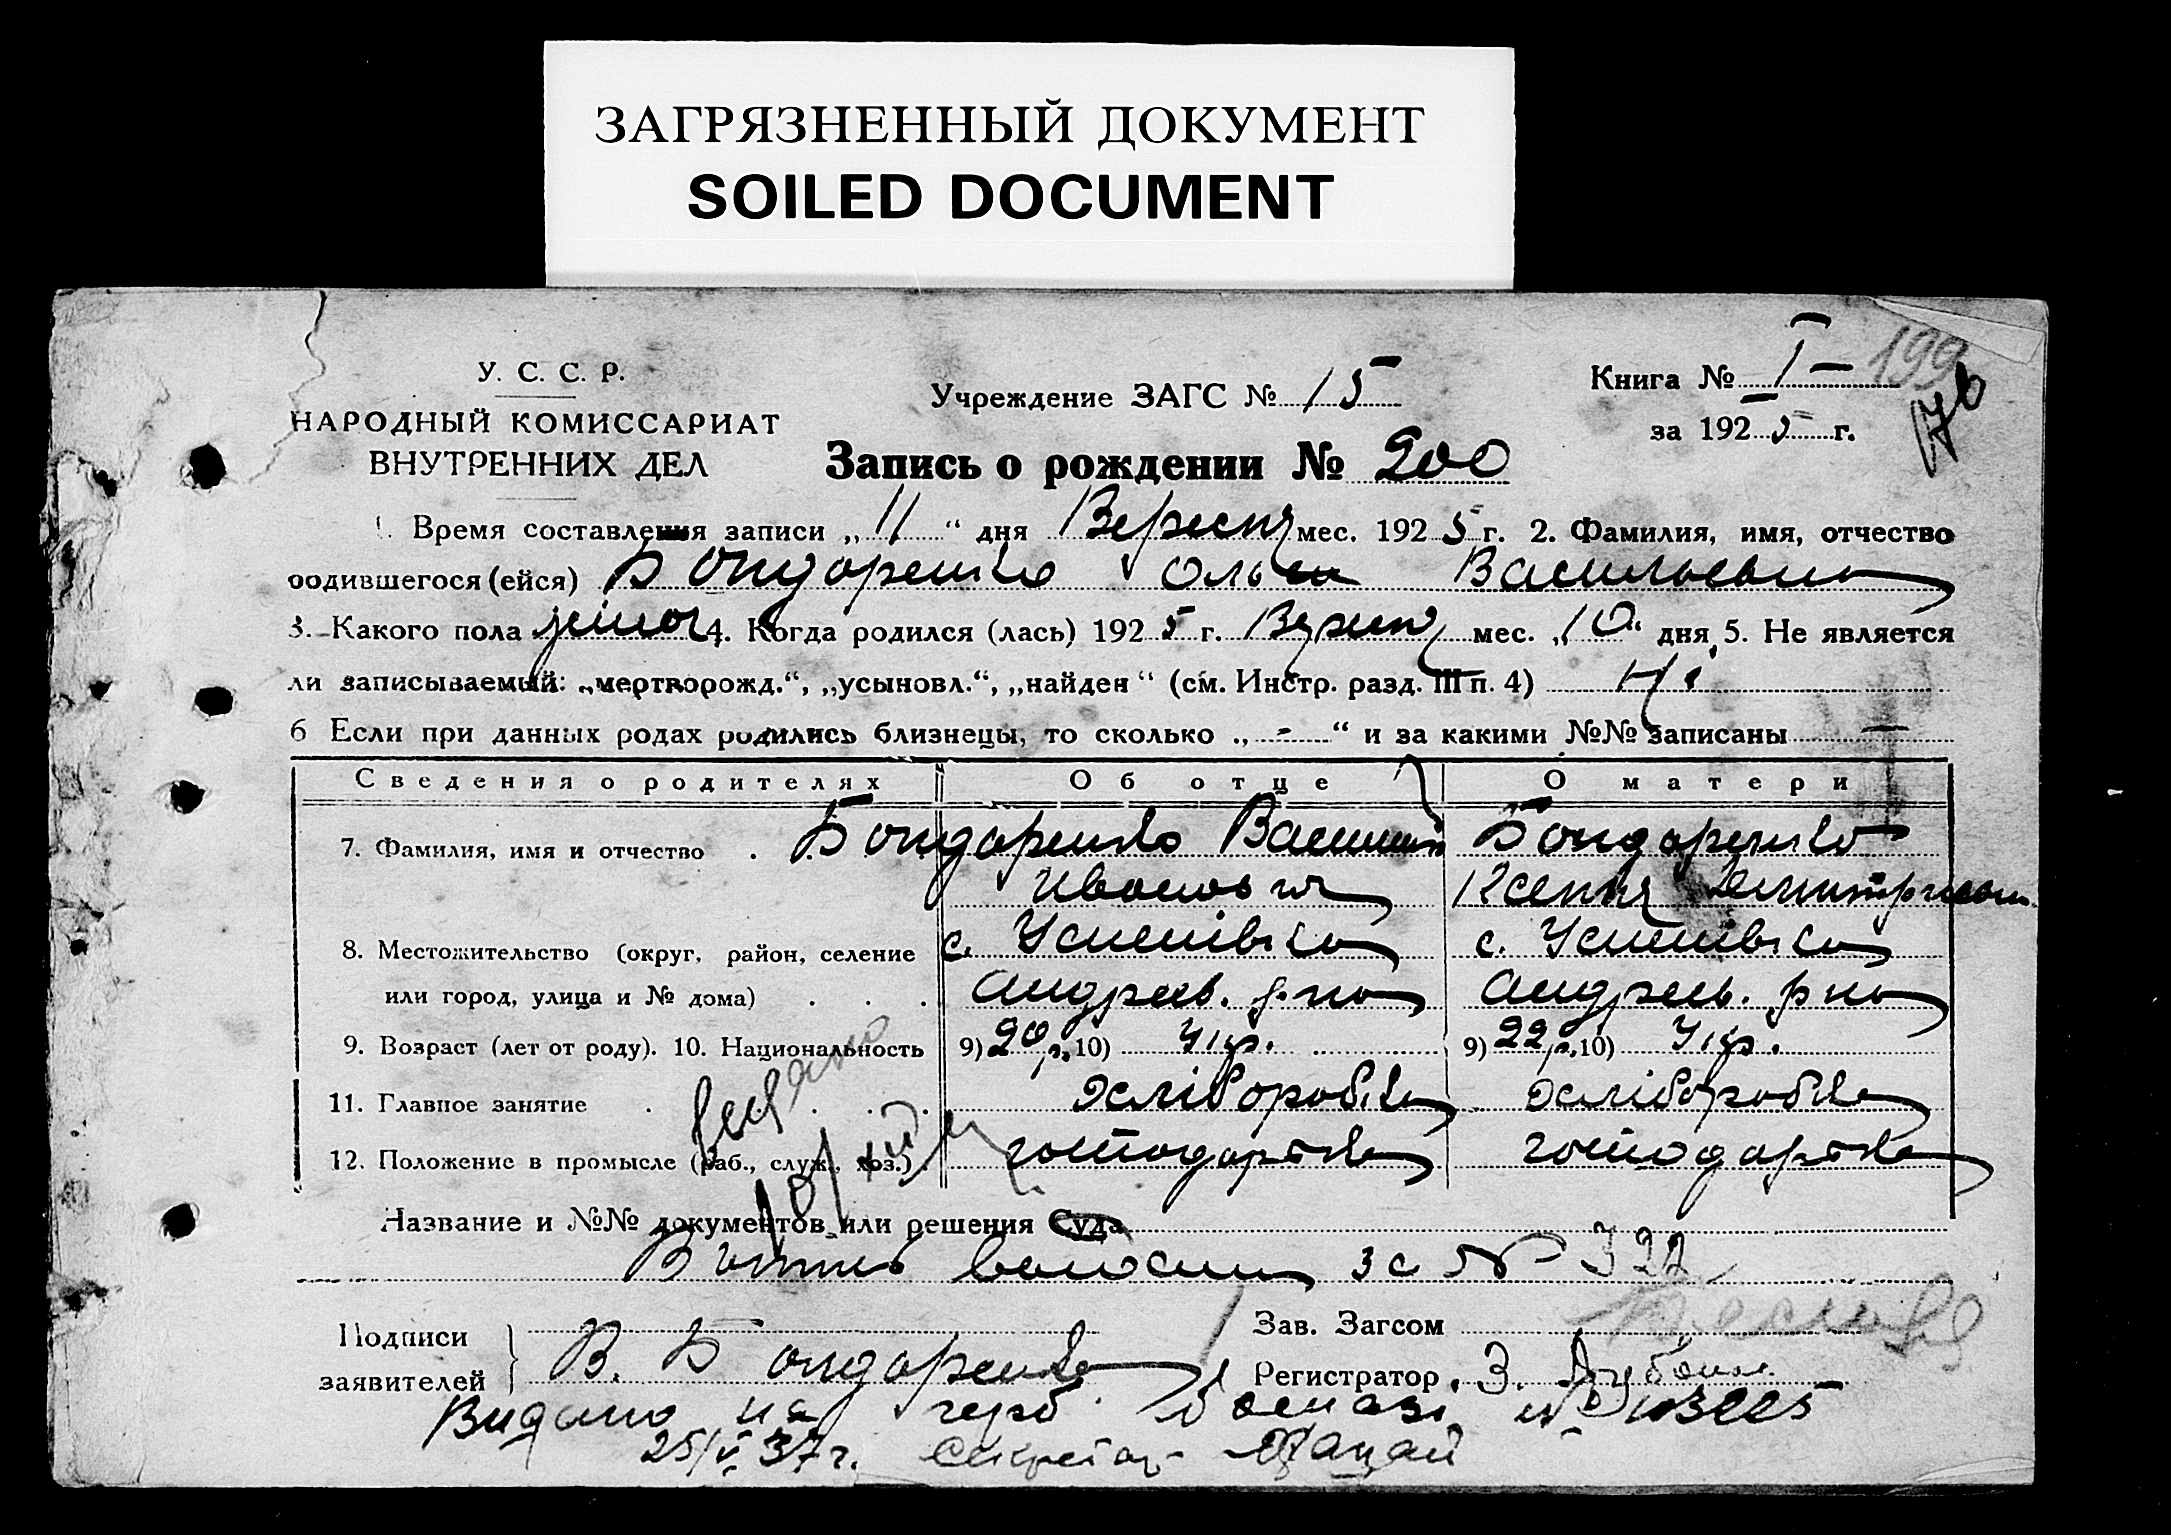 ЗАГРЯЗНЕННЫЙ ДОКУМЕНТ
SOILED DOCUMENT
У. С. С. Р.
НАРОДНЫЙ КОМИССАРИАТ
ВНУТРЕННИХ ДЕЛ
Учреждение ЗАГС № 15
Книга № I —
199
176
за 1925 г.
Запись о рождении № 200
1. Время составления записи „11“ дня Вересня мес. 1925 г. 2. Фамилия, имя, отчество
родившегося (ейся) Бондаренко Ольга Васильевна
3. Какого пола жіноч 4. Когда родился (лась) 1925 г. Вересня мес. „10“ дня 5. Не является
ли записываемый: „мертворожд.“, „усыновл.“, „найден“ (см. Инстр. разд. III п. 4) Ні
6 Если при данных родах родились близнецы, то сколько „-“ и за какими №№ записаны —
Сведения о родителях Об отце О матери
7. Фамилия, имя и отчество . Бондаренко Василий Бондаренко
Иванович Ксения Дмитриевн
8. Местожительство (округ, район, селение с. Успенівка с. Успенівка
или город, улица и № дома) . . . Андреев. р-на Андреев. р-на
9. Возраст (лет от роду). 10. Национальность 9) 20 р. 10) Укр. 9) 22 р. 10) Укр.
11. Главное занятие . . . . Хліборобка Хліборобка
12. Положение в промысле (раб., служ., хоз.) . господарка господарка
Название и №№ документов или решения Суда
Витяг волосни за № 322
Подписи
заявителей } В. Бондаренко
Зав. Загсом
Регистратор З.
Видано на герб. №
25/V 37 г. Секретар